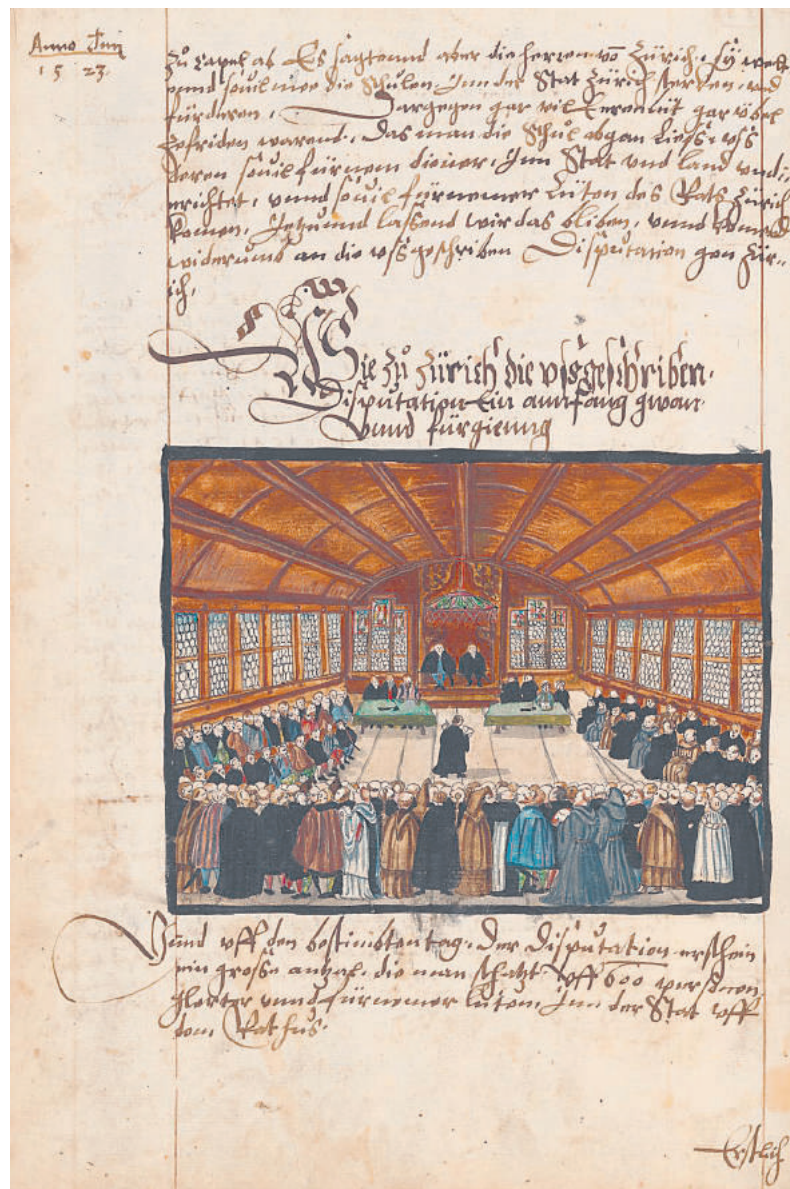 Anno Dni
1523
zů Capel ab Es sagtennd aber die herren vo Zürich, sy welt
vnnd souil mee die Schůlen, Inn der Stat Zürich stercken, vnd
fürderen, Dargegen gar vil Eeren lüt gar übel
zefriden warend, Das man die Schůl abgan liess, vss
deren souil fürnem diener, Inn Stat vnd land
errichtet, vnnd souil fürnemer Lüten des Rats Zürich
komen, Jetzund lassend wir das bliben, vnnd
widerumb an die vssgeschriben Disputation gen Zür„
ich,
Wie zů Zürich die vssgeschriben
Disputation Ein annfang gwan
vnnd fürgieung
Vnnd vff den bestimbten tag, der Disputation erschein
ein grosse antzal, die man schatzt vff 600 personen
glerter vnnd fürnemer lüten, Inn der Stat vff
dem Rathus.
Erstlich